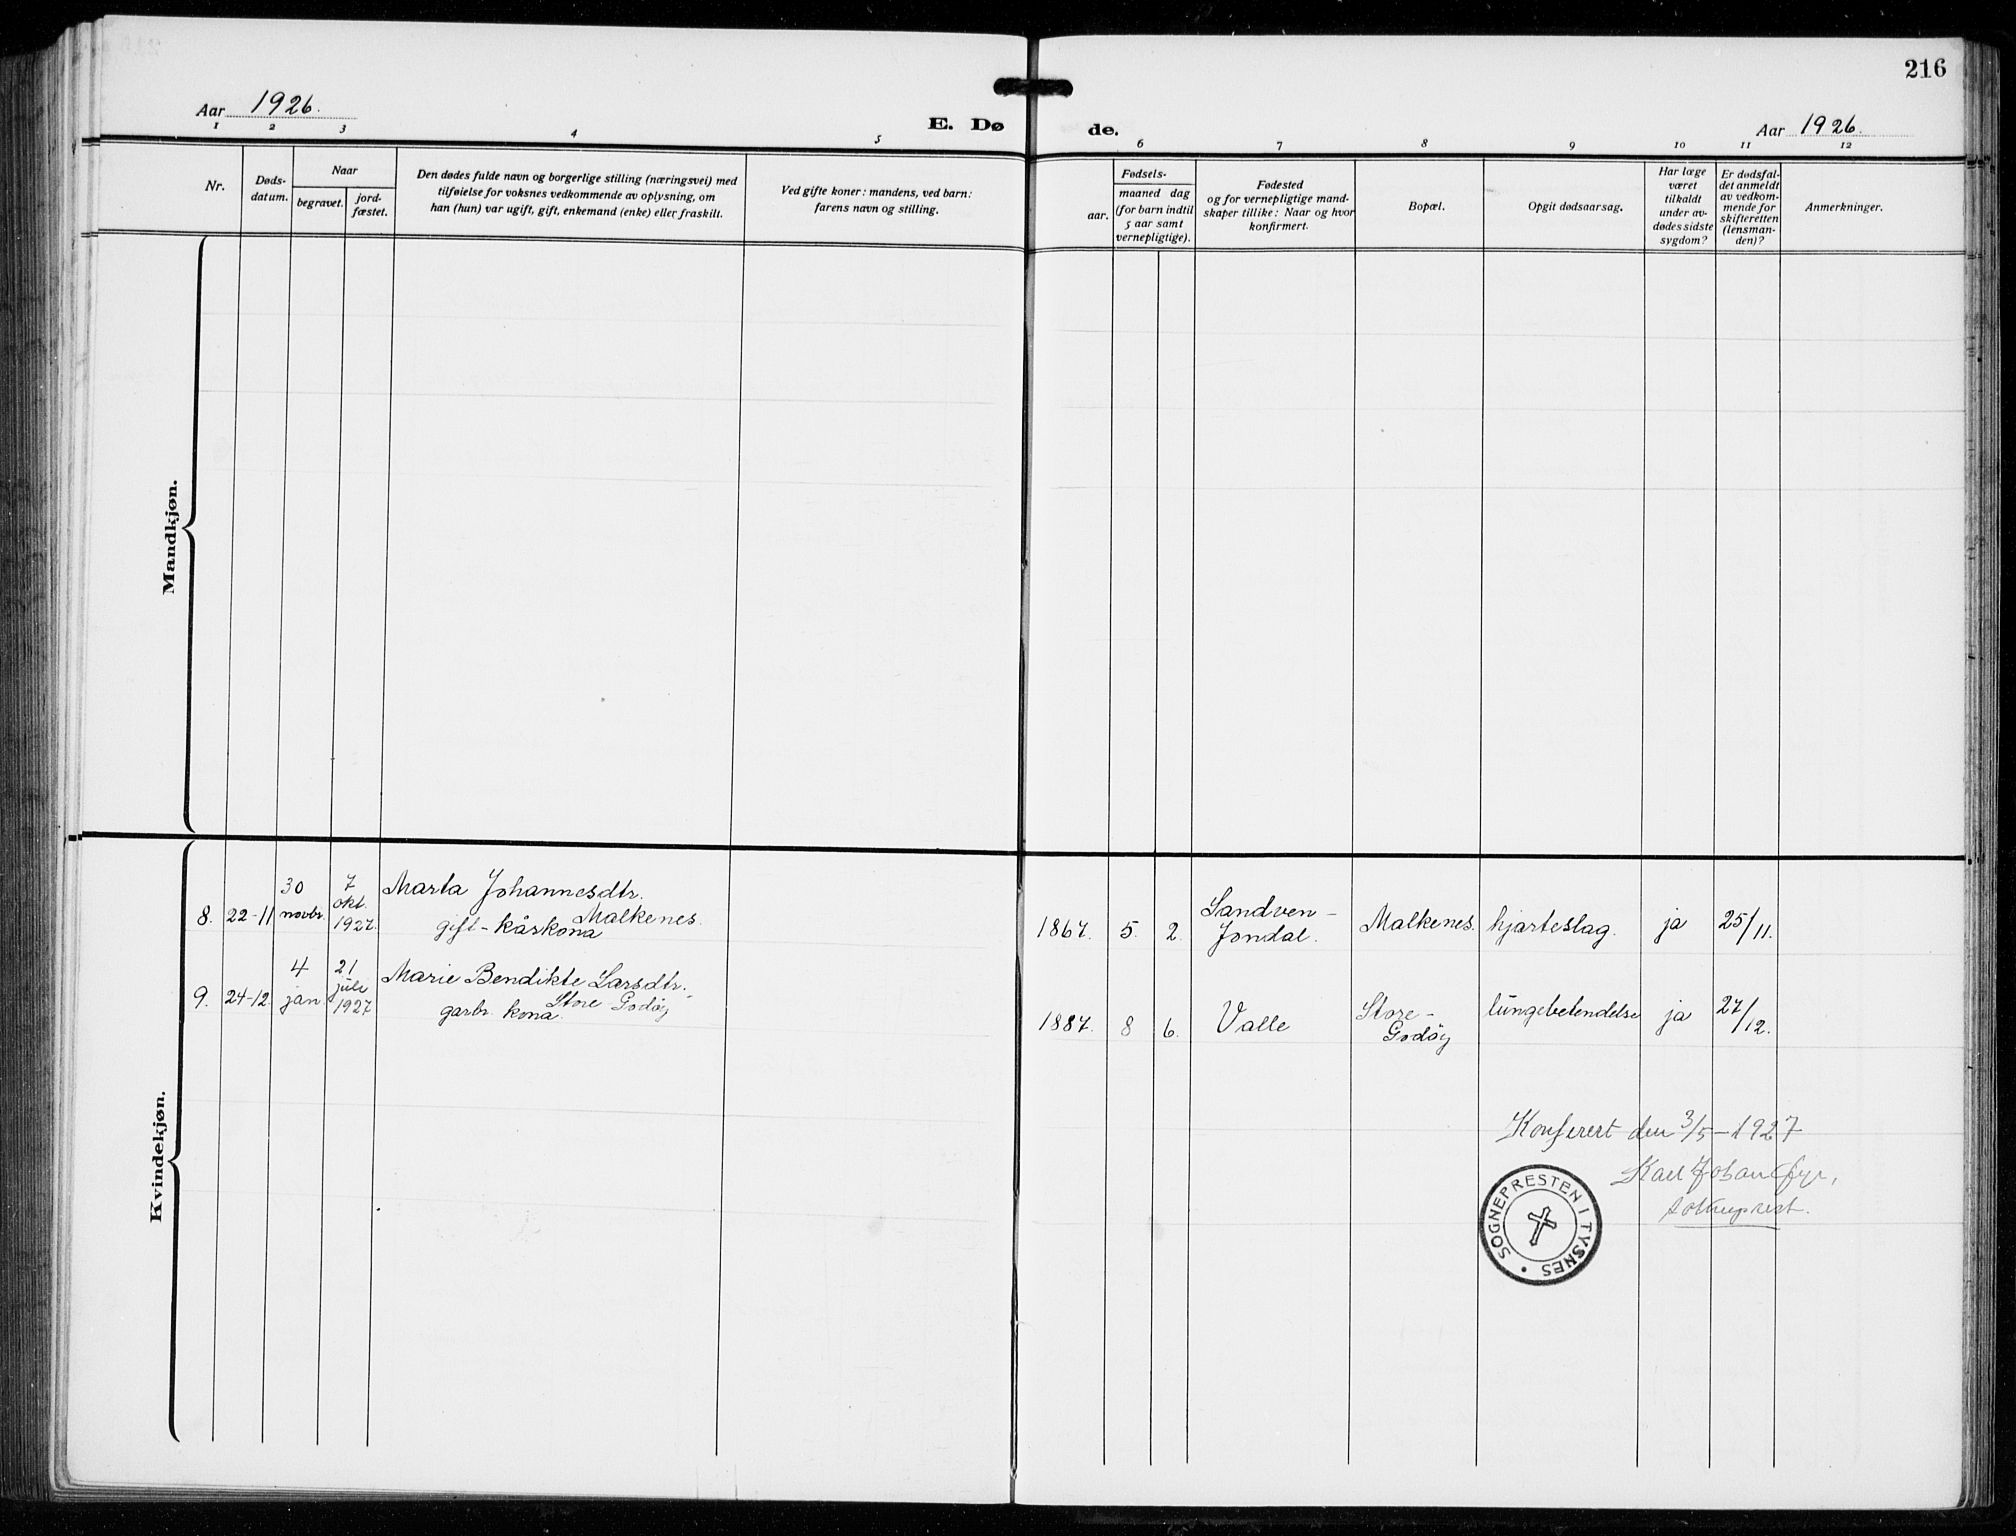 216
Aar 1926.
E. Døde.
Aar 1926.
1 2 3 4 5 6 7 8 9 10 11 12
Nr.
Døds-
datum.
Naar
begravet.
jord-
fæstet.
Den dødes fulde navn og borgerlige stilling (næringsvei) med
tilføielse for voksnes vedkommende av oplysning, om
han (hun) var ugift, gift, enkemand (enke) eller fraskilt.
Ved gifte koner: mandens, ved barn:
farens navn og stilling.
Fødsels-
aar.
maaned dag
(for barn indtil
5 aar samt
vernepligtige).
Fødested
og for vernepligtige mand-
skaper tillike: Naar og hvor
konfirmert.
Bopæl.
Opgit dødsaarsag.
Har læge
været
tilkaldt
under av-
dødes sidste
sygdom?
Er dødsfal-
det anmeldt
av vedkom-
mende for
skifteretten
(lensman-
den)?
Anmerkninger.
Mandkjøn.
Kvindekjøn.
8.
22-11
30
novbr.
7
okt.
1927.
Marta Johannesdtr.
Malkenes.
gift - kårkona
1867.
5.
2.
Sandven -
Jondal.
Malkenes.
hjarteslag.
ja
25/11.
9.
24-12.
4
jan.
21
juli
1927
Marie Bendikte Larsdtr.
Store-Godöy
garbr. kona.
1887.
8
6.
Valle
Store-
Godöy
lungebetendelse
ja
27/12.
Konferert den 3/5-1927
Karl Johan
sokneprest.
SOGNEPRESTEN I TYSNES